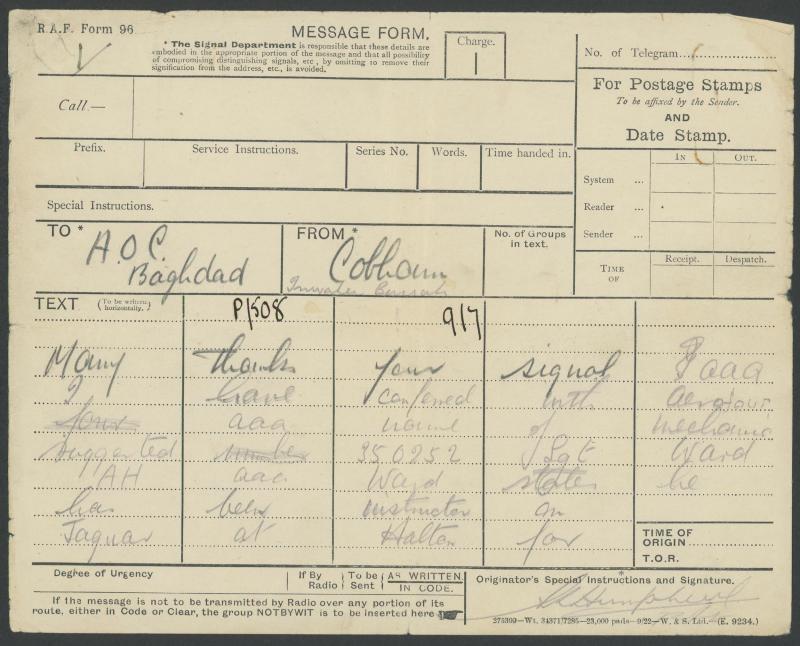 R.A.F. Form 96
MESSAGE FORM.
* The Signal Department is responsible that these details are
embodied in the appropriate portion of the message and that all possibility
of compromising distinguishing signals, etc, by omitting to remove their
signification from the address, etc., is avoided.
Charge.
No. of Telegram
For Postage Stamps
To be affixed by the Sender.
AND
Date Stamp.
Call.—
Prefix.
Service Instructions.
Series No.
Words.
Time handed in.
IN
OUT.
System ...
Reader ...
Sender ...
Special Instructions.
Receipt.
Despatch.
TIME
OF
TO *
A.O.C.
Baghdad
FROM *
Cobham
No. of Groups
in text.
TEXT (To be written horizontally.)
P/508
9/7
Many thanks your signal aaa
I have conferred with
aaa name of mechanic
suggested 350252 Sgt Ward
AH aaa Ward states he
has been instructor on
Jaguar at Halton for
TIME OF
ORIGIN
T.O.R.
Degree of Urgency
If By
Radio
To be
Sent
AS WRITTEN
IN CODE.
Originator's Special Instructions and Signature.
If the message is not to be transmitted by Radio over any portion of its
route, either in Code or Clear, the group NOTBYWIT is to be inserted here
275309—Wt. 34371/7285—23,000 pads—9/22—W. & S. Ltd.—(E. 9234.)